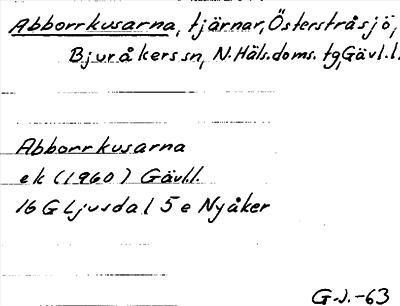 Abborrkusarna, tjärnar, Österstråsjö,
Bjuråkers sn, N. Häls. doms. tg, Gävl. l.
Abborrkusarna
ek (1960) Gävl.l.
16 G Ljusdal 5 e Nyåker
G.J.-63